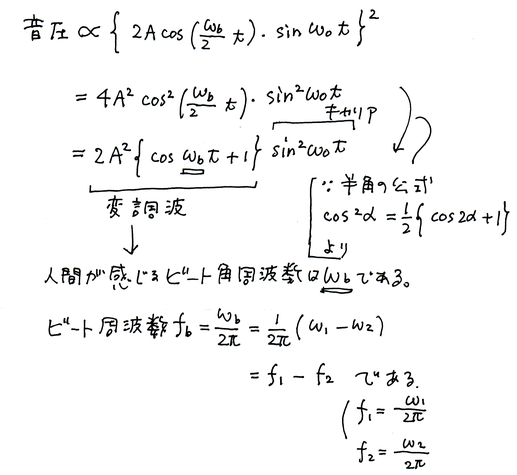 音圧 ∝ { 2A cos (ω_b/2 t) · sin ω₀ t }²
= 4A² cos² (ω_b/2 t) · sin² ω₀t
キャリア
= 2A² { cos ω_b t + 1 } sin² ω₀t
変調波
∵ 半角の公式
cos²α = 1/2 { cos 2α + 1 }
より
人間が感じるビート角周波数は ω_b である。
ビート周波数 f_b = ω_b/2π = 1/2π (ω₁ − ω₂)
= f₁ − f₂ である.
( f₁ = ω₁/2π
f₂ = ω₂/2π